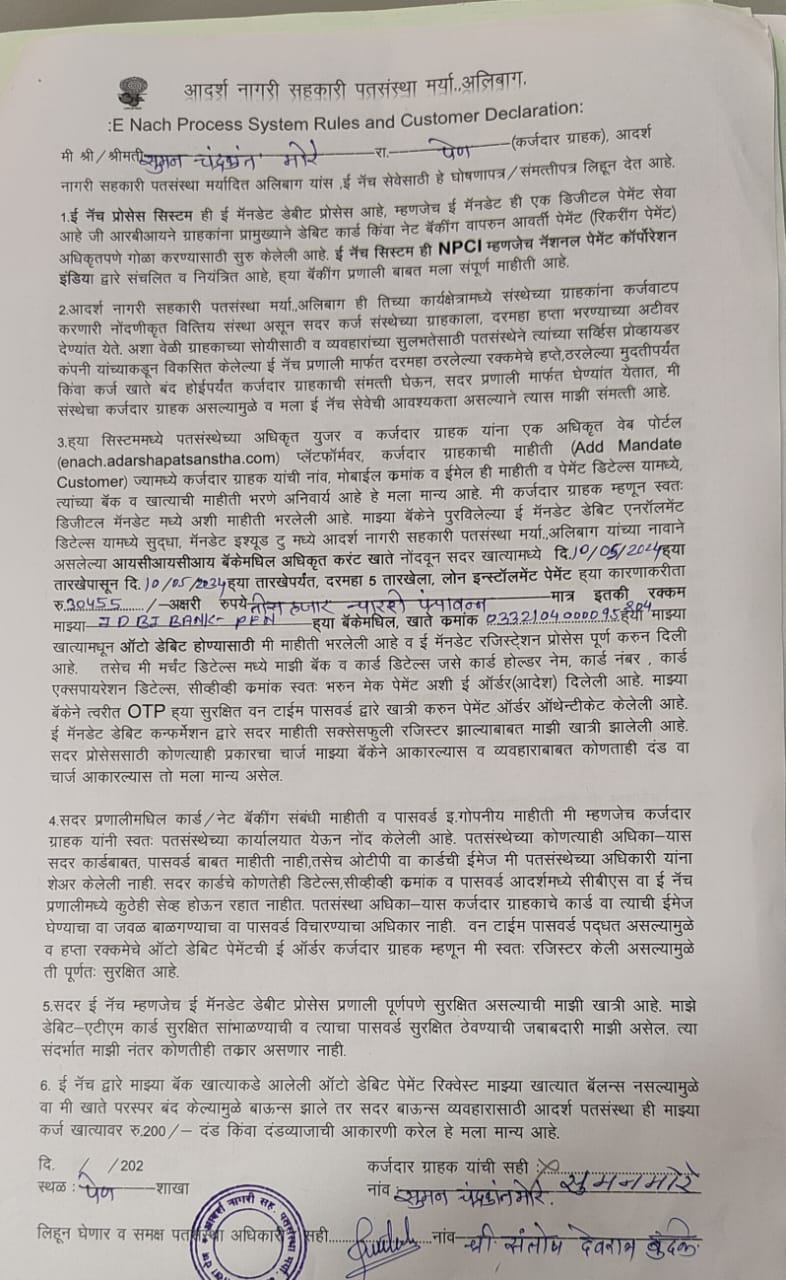 आदर्श नागरी सहकारी पतसंस्था मर्या.,अलिबाग.
:E Nach Process System Rules and Customer Declaration:
मी श्री/श्रीमती सुमन चंद्रकांत मोरे रा. पेण (कर्जदार ग्राहक), आदर्श
नागरी सहकारी पतसंस्था मर्यादित अलिबाग यांस ,ई नॅच सेवेसाठी हे घोषणापत्र/संमत्तीपत्र लिहून देत आहे.
1.ई नॅच प्रोसेस सिस्टम ही ई मॅनडेट डेबीट प्रोसेस आहे, म्हणजेच ई मॅनडेट ही एक डिजीटल पेमेंट सेवा
आहे जी आरबीआयने ग्राहकांना प्रामुख्याने डेबिट कार्ड किंवा नेट बॅकींग वापरुन आवर्ती पेमेंट (रिकरींग पेमेंट)
अधिकृतपणे गोळा करण्यासाठी सुरु केलेली आहे. ई नॅच सिस्टम ही NPCI म्हणजेच नॅशनल पेमेंट कॉर्पोरेशन
इंडिया द्वारे संचलित व नियंत्रित आहे, हया बॅकींग प्रणाली बाबत मला संपूर्ण माहीती आहे.
2.आदर्श नागरी सहकारी पतसंस्था मर्या.,अलिबाग ही तिच्या कार्यक्षेत्रामध्ये संस्थेच्या ग्राहकांना कर्जवाटप
करणारी नोंदणीकृत वित्तिय संस्था असून सदर कर्ज संस्थेच्या ग्राहकाला, दरमहा हप्ता भरण्याच्या अटीवर
देण्यांत येते. अशा वेळी ग्राहकाच्या सोयीसाठी व व्यवहारांच्या सुलभतेसाठी पतसंस्थेने त्यांच्या सर्व्हिस प्रोव्हायडर
कंपनी यांच्याकडून विकसित केलेल्या ई नॅच प्रणाली मार्फत दरमहा ठरलेल्या रक्कमेचे हप्ते,ठरलेल्या मुदतीपर्यंत
किंवा कर्ज खाते बंद होईपर्यंत कर्जदार ग्राहकाची संमत्ती घेऊन, सदर प्रणाली मार्फत घेण्यांत येतात, मी
संस्थेचा कर्जदार ग्राहक असल्यामुळे व मला ई नॅच सेवेची आवश्यकता असल्याने त्यास माझी संमत्ती आहे.
3.हया सिस्टममध्ये पतसंस्थेच्या अधिकृत युजर व कर्जदार ग्राहक यांना एक अधिकृत वेब पोर्टल
(enach.adarshapatsanstha.com) प्लॅटफॉर्मवर, कर्जदार ग्राहकाची माहीती (Add Mandate
Customer) ज्यामध्ये कर्जदार ग्राहक यांची नांव, मोबाईल क्रमांक व ईमेल ही माहीती व पेमेंट डिटेल्स यामध्ये,
त्यांच्या बॅक व खात्याची माहीती भरणे अनिवार्य आहे हे मला मान्य आहे. मी कर्जदार ग्राहक म्हणून स्वतः
डिजीटल मॅनडेट मध्ये अशी माहीती भरलेली आहे. माझ्या बॅकेने पुरविलेल्या ई मॅनडेट डेबिट एनरॉलमेंट
डिटेल्स यामध्ये सुद्धा, मॅनडेट इश्यूड टु मध्ये आदर्श नागरी सहकारी पतसंस्था मर्या.,अलिबाग यांच्या नावाने
असलेल्या आयसीआयसीआय बॅकेमधिल अधिकृत करंट खाते नोंदवून सदर खात्यामध्ये दि.10/05/2024हया
तारखेपासून दि.10/05/2034हया तारखेपर्यंत, दरमहा 5 तारखेला, लोन इन्स्टॉलमेंट पेमेंट हया कारणाकरीता
रु.30455/-अक्षरी रुपये तीस हजार च्यारशे पंचावन्न मात्र इतकी रक्कम
माझ्या IDBI BANK- PEN हया बॅकेमधिल, खाते क्रमांक हया माझ्या
खात्यामधून ऑटो डेबिट होण्यासाठी मी माहीती भरलेली आहे व ई मॅनडेट रजिस्टे्शन प्रोसेस पूर्ण करुन दिली
आहे. तसेच मी मर्चंट डिटेल्स मध्ये माझी बॅक व कार्ड डिटेल्स जसे कार्ड होल्डर नेम, कार्ड नंबर , कार्ड
एक्सपायरेशन डिटेल्स, सीव्हीव्ही क्रमांक स्वतः भरुन मेक पेमेंट अशी ई ऑर्डर(आदेश) दिलेली आहे. माझ्या
बॅकेने त्वरीत OTP हया सुरक्षित वन टाईम पासवर्ड द्वारे खात्री करुन पेमेंट ऑर्डर ऑथेन्टीकेट केलेली आहे.
ई मॅनडेट डेबिट कन्फर्मेशन द्वारे सदर माहीती सक्सेसफुली रजिस्टर झाल्याबाबत माझी खात्री झालेली आहे.
सदर प्रोसेससाठी कोणत्याही प्रकारचा चार्ज माझ्या बॅकेने आकारल्यास व व्यवहाराबाबत कोणताही दंड वा
चार्ज आकारल्यास तो मला मान्य असेल.
4.सदर प्रणालीमधिल कार्ड/नेट बॅकींग संबंधी माहीती व पासवर्ड इ.गोपनीय माहीती मी म्हणजेच कर्जदार
ग्राहक यांनी स्वतः पतसंस्थेच्या कार्यालयात येऊन नोंद केलेली आहे. पतसंस्थेच्या कोणत्याही अधिका–यास
सदर कार्डबाबत, पासवर्ड बाबत माहीती नाही,तसेच ओटीपी वा कार्डची ईमेज मी पतसंस्थेच्या अधिकारी यांना
शेअर केलेली नाही. सदर कार्डचे कोणतेही डिटेल्स,सीव्हीव्ही क्रमांक व पासवर्ड आदर्शमध्ये सीबीएस वा ई नॅच
प्रणालीमध्ये कुठेही सेव्ह होऊन रहात नाहीत. पतसंस्था अधिका–यास कर्जदार ग्राहकाचे कार्ड वा त्याची ईमेज
घेण्याचा वा जवळ बाळगण्याचा वा पासवर्ड विचारण्याचा अधिकार नाही. वन टाईम पासवर्ड पद्धत असल्यामुळे
व हप्ता रक्कमेचे ऑटो डेबिट पेमेंटची ई ऑर्डर कर्जदार ग्राहक म्हणून मी स्वतः रजिस्टर केली असल्यामुळे
ती पूर्णतः सुरक्षित आहे.
5.सदर ई नॅच म्हणजेच ई मॅनडेट डेबीट प्रोसेस प्रणाली पूर्णपणे सुरक्षित असल्याची माझी खात्री आहे. माझे
डेबिट–एटीएम कार्ड सुरक्षित सांभाळण्याची व त्याचा पासवर्ड सुरक्षित ठेवण्याची जबाबदारी माझी असेल. त्या
संदर्भात माझी नंतर कोणतीही तक्रार असणार नाही.
6. ई नॅच द्वारे माझ्या बॅक खात्याकडे आलेली ऑटो डेबिट पेमेंट रिक्वेस्ट माझ्या खात्यात बॅलन्स नसल्यामुळे
वा मी खाते परस्पर बंद केल्यामुळे बाऊन्स झाले तर सदर बाऊन्स व्यवहारासाठी आदर्श पतसंस्था ही माझ्या
कर्ज खात्यावर रु.200/– दंड किंवा दंडव्याजाची आकारणी करेल हे मला मान्य आहे.
दि. / /202 कर्जदार ग्राहक यांची सही : सुमन मोरे
स्थळ : पेण शाखा नांव सुमन चंद्रकांत मोरे.
लिहून घेणार व समक्ष पतसंस्था अधिकारी सही नांव श्री. संतोष देवराम